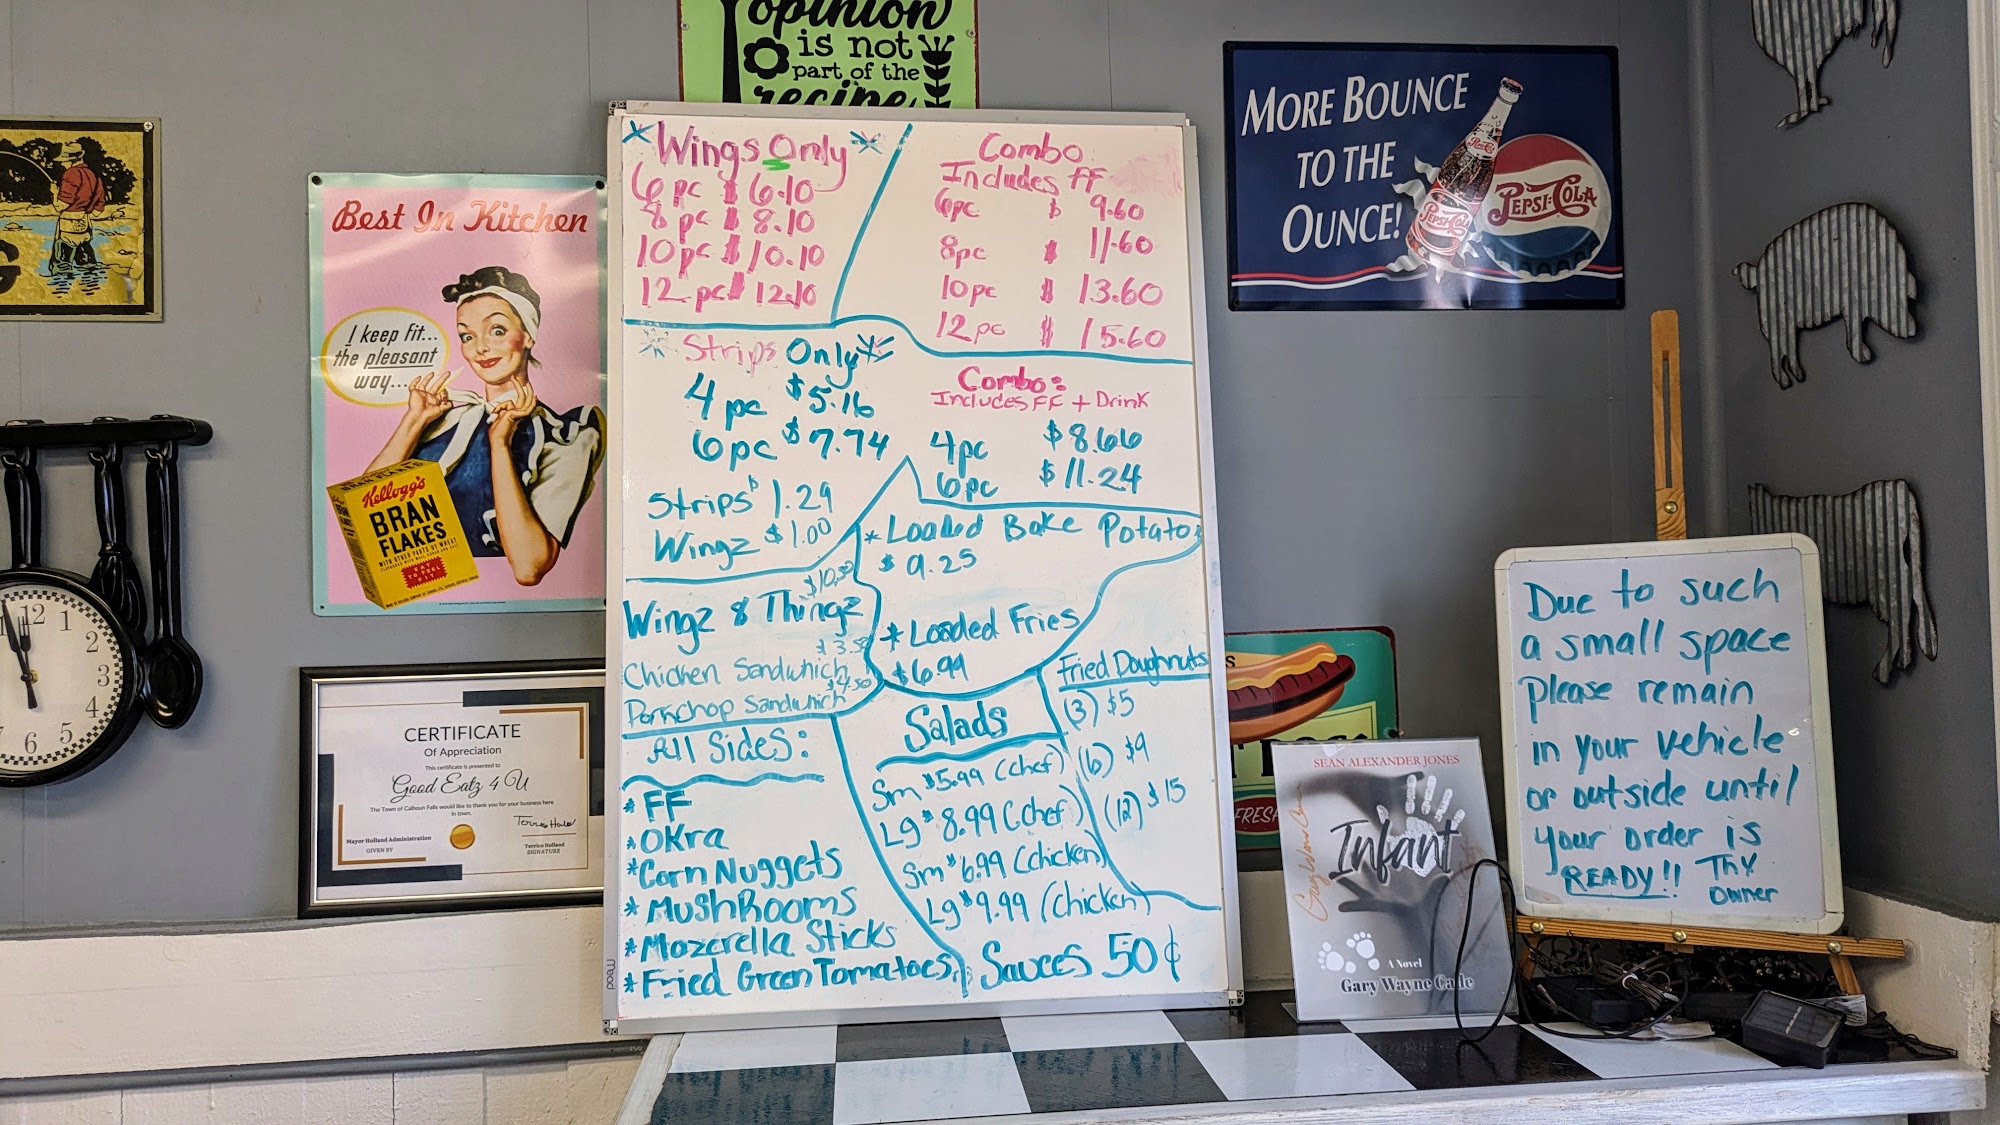 opinion
is not
part of the
recipe
Best In Kitchen
I keep fit...
the pleasant
way...
Kellogg's
BRAN
FLAKES
12
1
2
3
4
5
6
7
CERTIFICATE
Of Appreciation
This certificate is presented to
Good Eatz 4 U
The Town of Calhoun Falls would like to thank you for your business here
in town.
Mayor Holland Administration
GIVEN BY
Terrico Holland
SIGNATURE
Wings Only
6 pc $ 6.10
8 pc $ 8.10
10 pc $ 10.10
12 pc $ 12.10
Combo
Includes FF
6pc $ 9.60
8pc $ 11.60
10pc $ 13.60
12pc $ 15.60
Strips Only
4 pc $5.16
6 pc $7.74
Strips $1.29
Wingz $1.00
Combo:
Includes FF + Drink
4pc $8.66
6pc $11.24
* Loaded Bake Potato
$ 9.25
* Loaded Fries
$6.99
Wingz & Thingz
Chicken Sandwhich
Porkchop Sandwhich $4.50
All Sides:
* FF
* OKra
* Corn Nuggets
* MushRooms
* Mozerella Sticks
* Fried Green Tomatoes
Salads
Sm $5.99 (Chef)
Lg $8.99 (Chef)
Sm $6.99 (Chicken)
Lg $9.99 (Chicken)
Sauces 50¢
Fried Doughnuts
(3) $5
(6) $9
(12) $15
Mead
MORE BOUNCE
TO THE
OUNCE!
PEPSI-COLA
SEAN ALEXANDER JONES
Infant
A Novel
Due to such
a small space
please remain
in your vehicle
or outside until
your order is
READY!! Thx
Owner